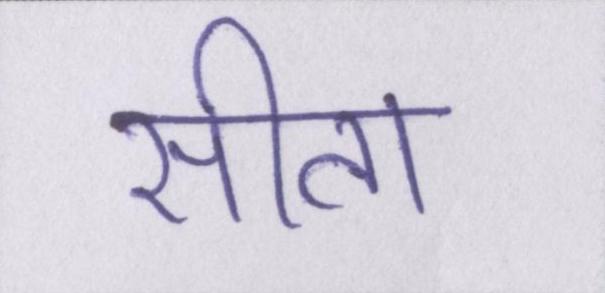 सीता